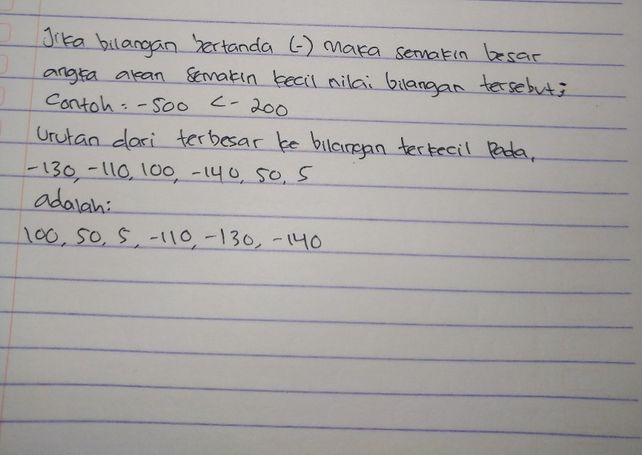 Jika bilangan bertanda (-) maka semakin besar
angka akan semakin kecil nilai bilangan tersebut;
Contoh = -500 < -200
Urutan dari terbesar ke bilangan terkecil Pada,
-130, -110, 100, -140, 50, 5
adalah:
100, 50, 5, -110, -130, -140